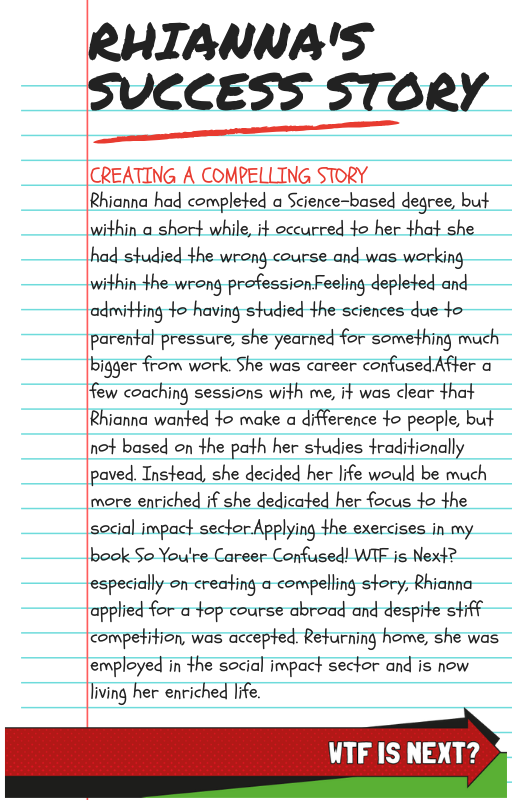 RHIANNA'S
SUCCESS STORY
CREATING A COMPELLING STORY
Rhianna had completed a Science-based degree, but
within a short while, it occurred to her that she
had studied the wrong course and was working
within the wrong profession.Feeling depleted and
admitting to having studied the sciences due to
parental pressure, she yearned for something much
bigger from work. She was career confused.After a
few coaching sessions with me, it was clear that
Rhianna wanted to make a difference to people, but
not based on the path her studies traditionally
paved. Instead, she decided her life would be much
more enriched if she dedicated her focus to the
social impact sector.Applying the exercises in my
book So You're Career Confused! WTF is Next?
especially on creating a compelling story, Rhianna
applied for a top course abroad and despite stiff
competition, was accepted. Returning home, she was
employed in the social impact sector and is now
living her enriched life.
WTF IS NEXT?